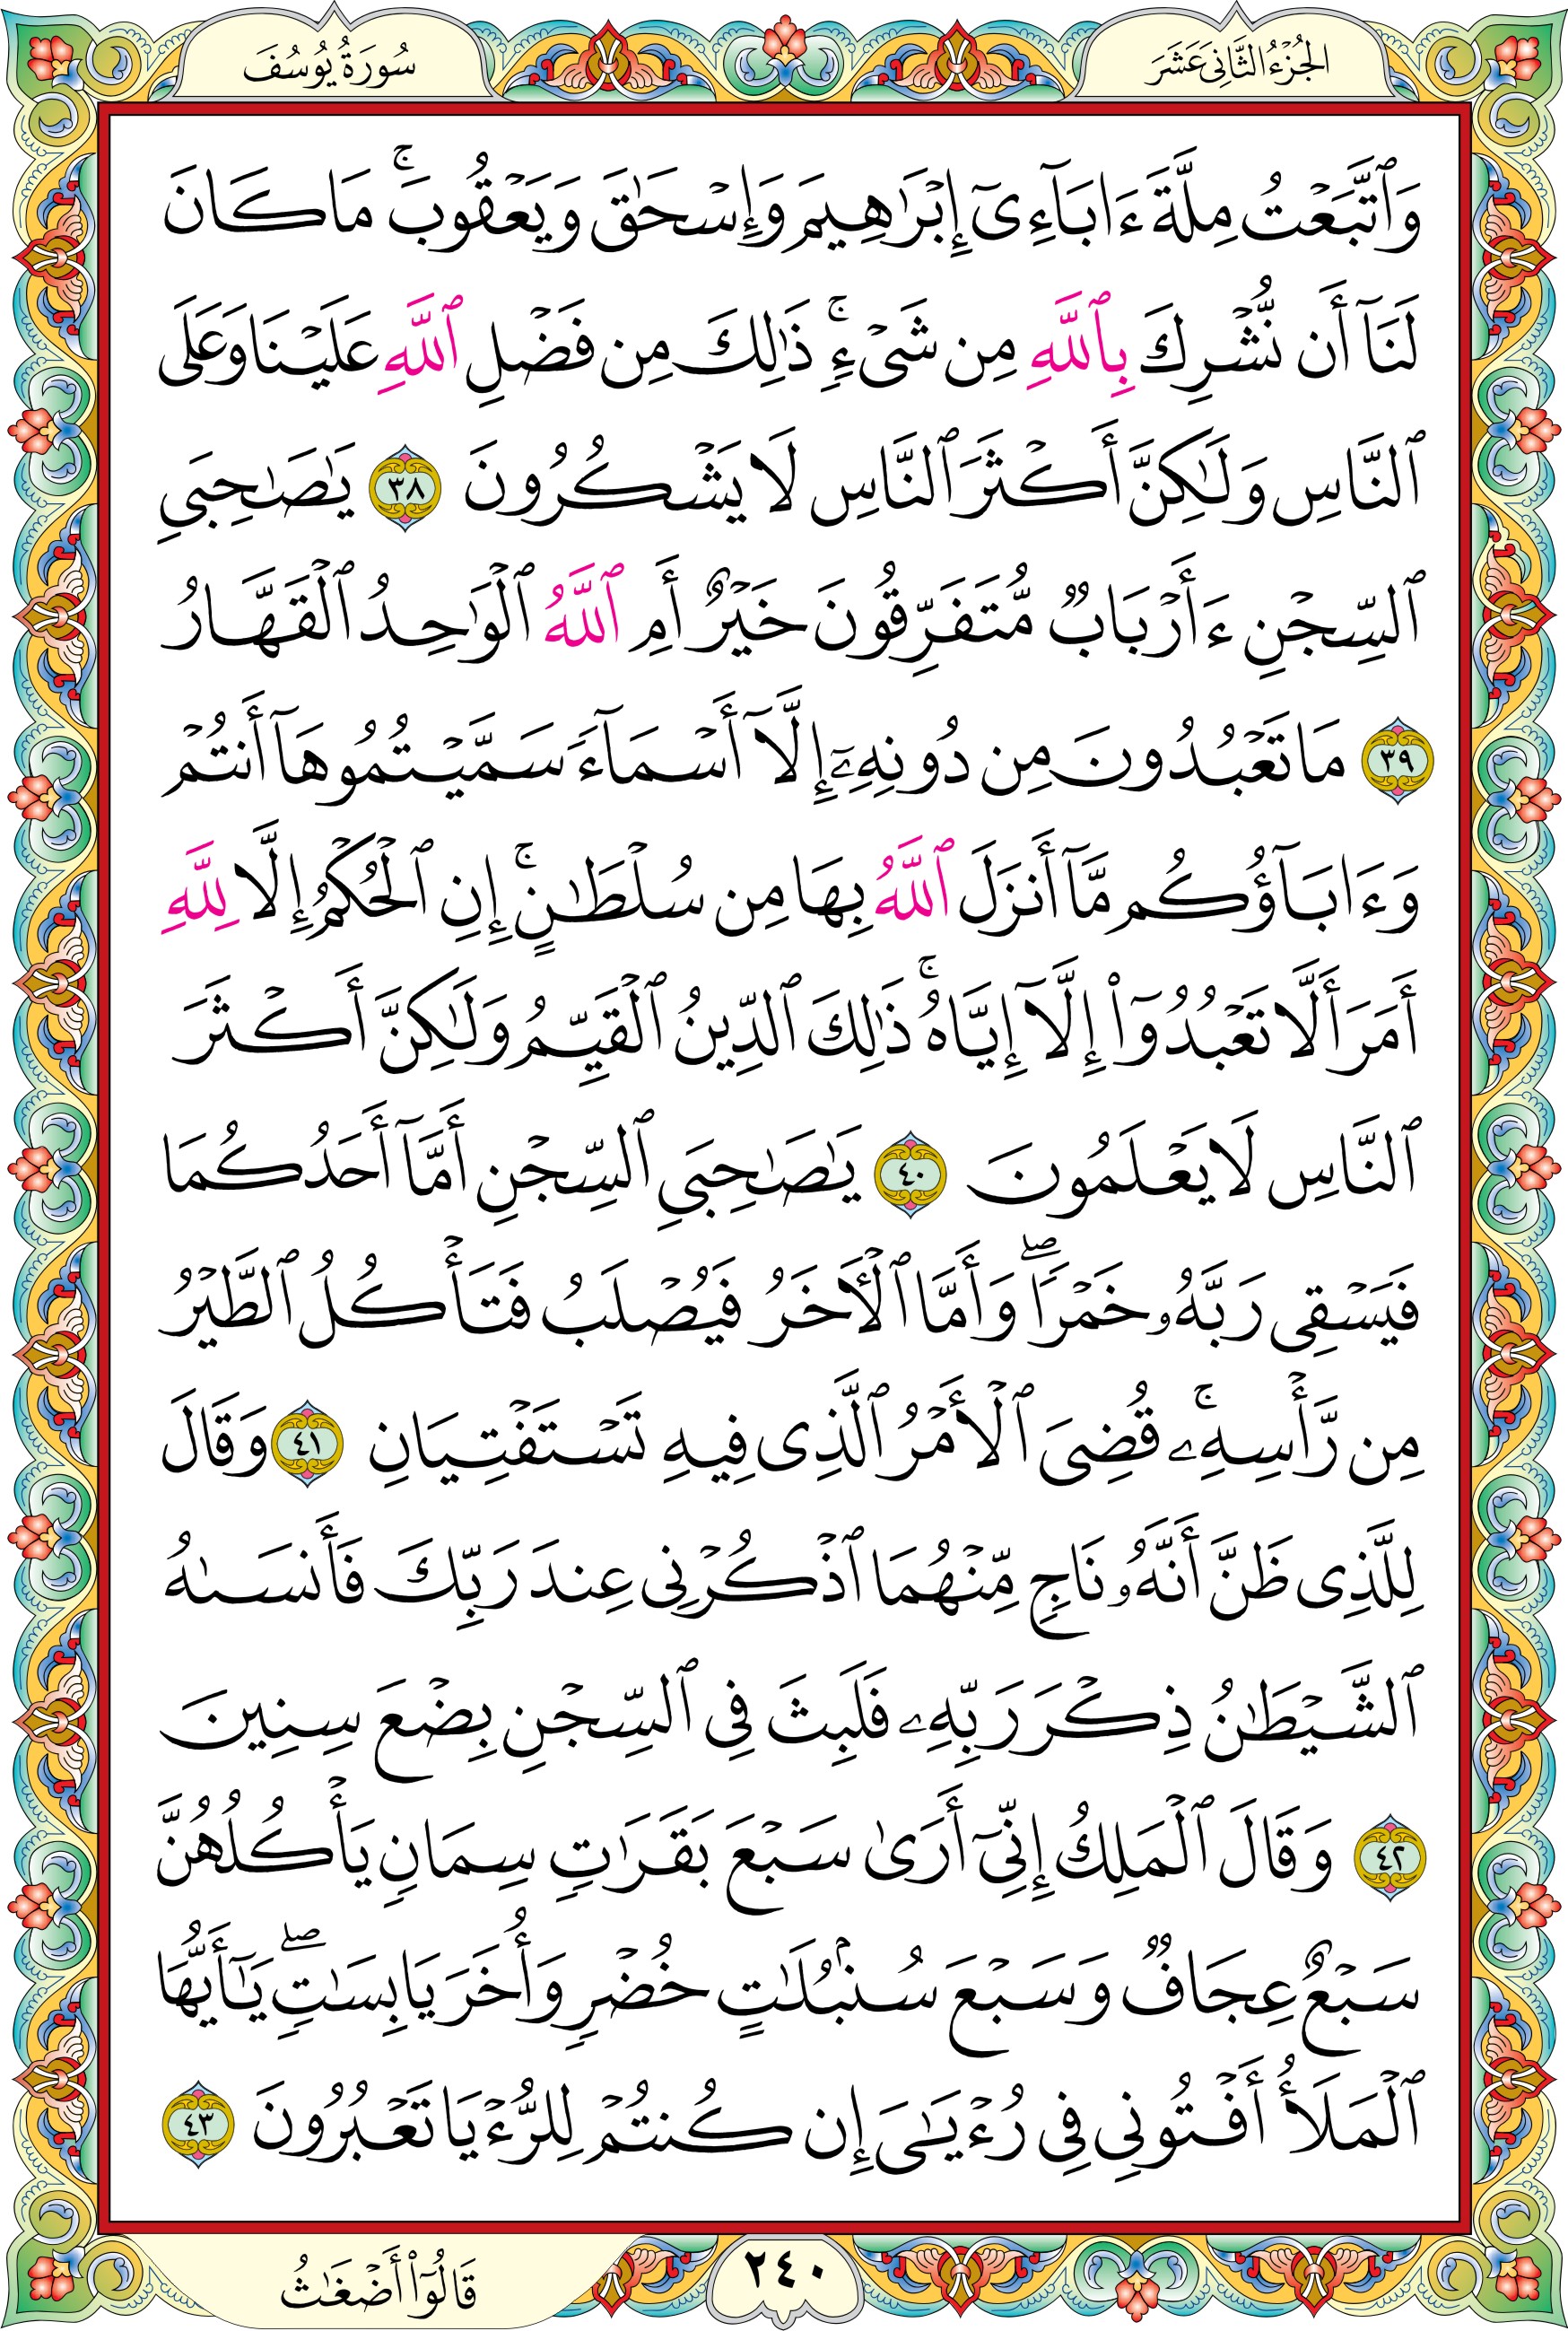 الجُزْءُ الثَّانِي عَشَرَ
سُورَةُ يُوسُفَ
وَٱتَّبَعۡتُ مِلَّةَ ءَابَآءِيٓ إِبۡرَٰهِيمَ وَإِسۡحَٰقَ وَيَعۡقُوبَۚ مَا كَانَ
لَنَآ أَن نُّشۡرِكَ بِٱللَّهِ مِن شَيۡءٖۚ ذَٰلِكَ مِن فَضۡلِ ٱللَّهِ عَلَيۡنَا وَعَلَى
ٱلنَّاسِ وَلَٰكِنَّ أَكۡثَرَ ٱلنَّاسِ لَا يَشۡكُرُونَ ٣٨ يَٰصَٰحِبَيِ
ٱلسِّجۡنِ ءَأَرۡبَابٞ مُّتَفَرِّقُونَ خَيۡرٌ أَمِ ٱللَّهُ ٱلۡوَٰحِدُ ٱلۡقَهَّارُ
٣٩ مَا تَعۡبُدُونَ مِن دُونِهِۦٓ إِلَّآ أَسۡمَآءٗ سَمَّيۡتُمُوهَآ أَنتُمۡ
وَءَابَآؤُكُم مَّآ أَنزَلَ ٱللَّهُ بِهَا مِن سُلۡطَٰنٍۚ إِنِ ٱلۡحُكۡمُ إِلَّا لِلَّهِ
أَمَرَ أَلَّا تَعۡبُدُوٓاْ إِلَّآ إِيَّاهُۚ ذَٰلِكَ ٱلدِّينُ ٱلۡقَيِّمُ وَلَٰكِنَّ أَكۡثَرَ
ٱلنَّاسِ لَا يَعۡلَمُونَ ٤٠ يَٰصَٰحِبَيِ ٱلسِّجۡنِ أَمَّآ أَحَدُكُمَا
فَيَسۡقِي رَبَّهُۥ خَمۡرٗاۖ وَأَمَّا ٱلۡأٓخَرُ فَيُصۡلَبُ فَتَأۡكُلُ ٱلطَّيۡرُ
مِن رَّأۡسِهِۦۚ قُضِيَ ٱلۡأَمۡرُ ٱلَّذِي فِيهِ تَسۡتَفۡتِيَانِ ٤١ وَقَالَ
لِلَّذِي ظَنَّ أَنَّهُۥ نَاجٖ مِّنۡهُمَا ٱذۡكُرۡنِي عِندَ رَبِّكَ فَأَنسَىٰهُ
ٱلشَّيۡطَٰنُ ذِكۡرَ رَبِّهِۦ فَلَبِثَ فِي ٱلسِّجۡنِ بِضۡعَ سِنِينَ
٤٢ وَقَالَ ٱلۡمَلِكُ إِنِّيٓ أَرَىٰ سَبۡعَ بَقَرَٰتٖ سِمَانٖ يَأۡكُلُهُنَّ
سَبۡعٌ عِجَافٞ وَسَبۡعَ سُنۢبُلَٰتٍ خُضۡرٖ وَأُخَرَ يَابِسَٰتٖۖ يَٰٓأَيُّهَا
ٱلۡمَلَأُ أَفۡتُونِي فِي رُءۡيَٰيَ إِن كُنتُمۡ لِلرُّءۡيَا تَعۡبُرُونَ ٤٣
٢٤٠
قَالُوٓاْ أَضۡغَٰثُ